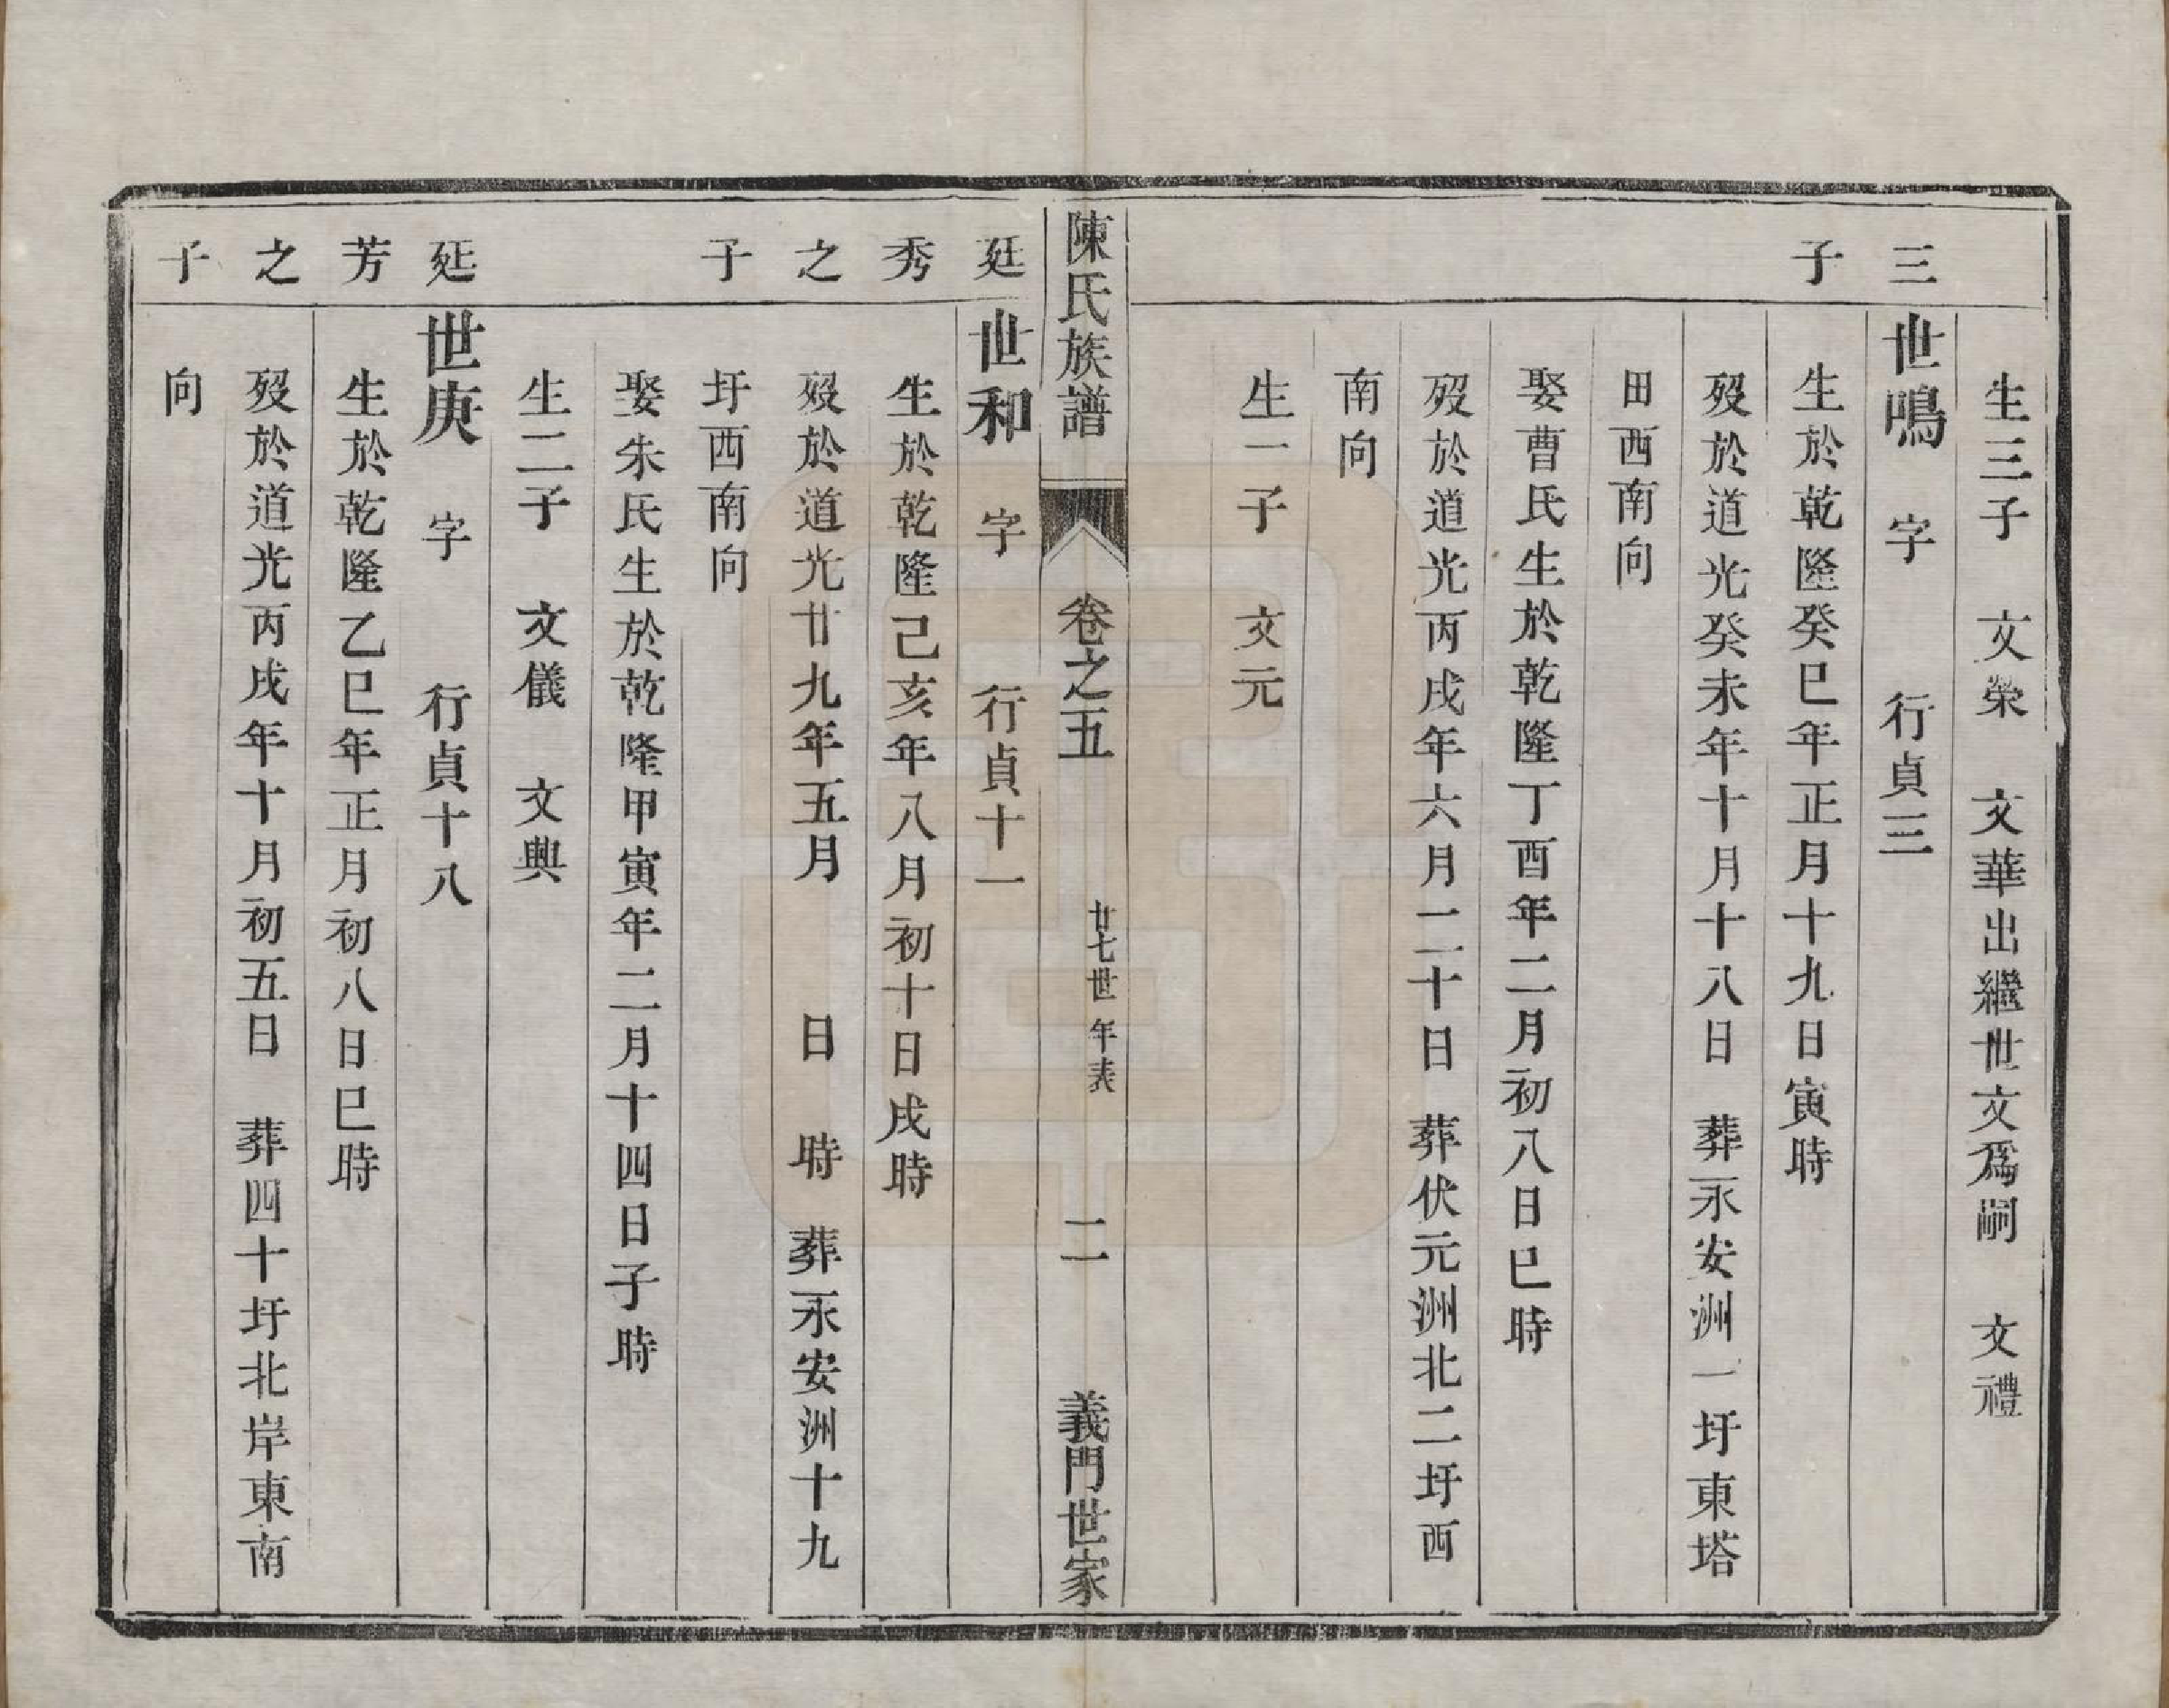 生三子　文榮　文華出繼世文爲嗣　文禮
三
世鳴　字　行貞三
子
生於乾隆癸巳年正月十九日寅時
歿於道光癸未年十月十八日　葬永安洲一圩東塔
田西南向
娶曹氏生於乾隆丁酉年二月初八日巳時
歿於道光丙戌年六月二十日　葬伏元洲北二圩西
南向
生一子　文元
陳氏族譜　卷之五　廿七世年表　二　義門世家
廷
世和　字　行貞十一
秀
生於乾隆己亥年八月初十日戌時
之
歿於道光廿九年五月　日　時　葬永安洲十九
子
圩西南向
娶朱氏生於乾隆甲寅年二月十四日子時
生二子　文儀　文興
廷
世庚　字　行貞十八
芳
生於乾隆乙巳年正月初八日巳時
之
歿於道光丙戌年十月初五日　葬四十圩北岸東南
子
向